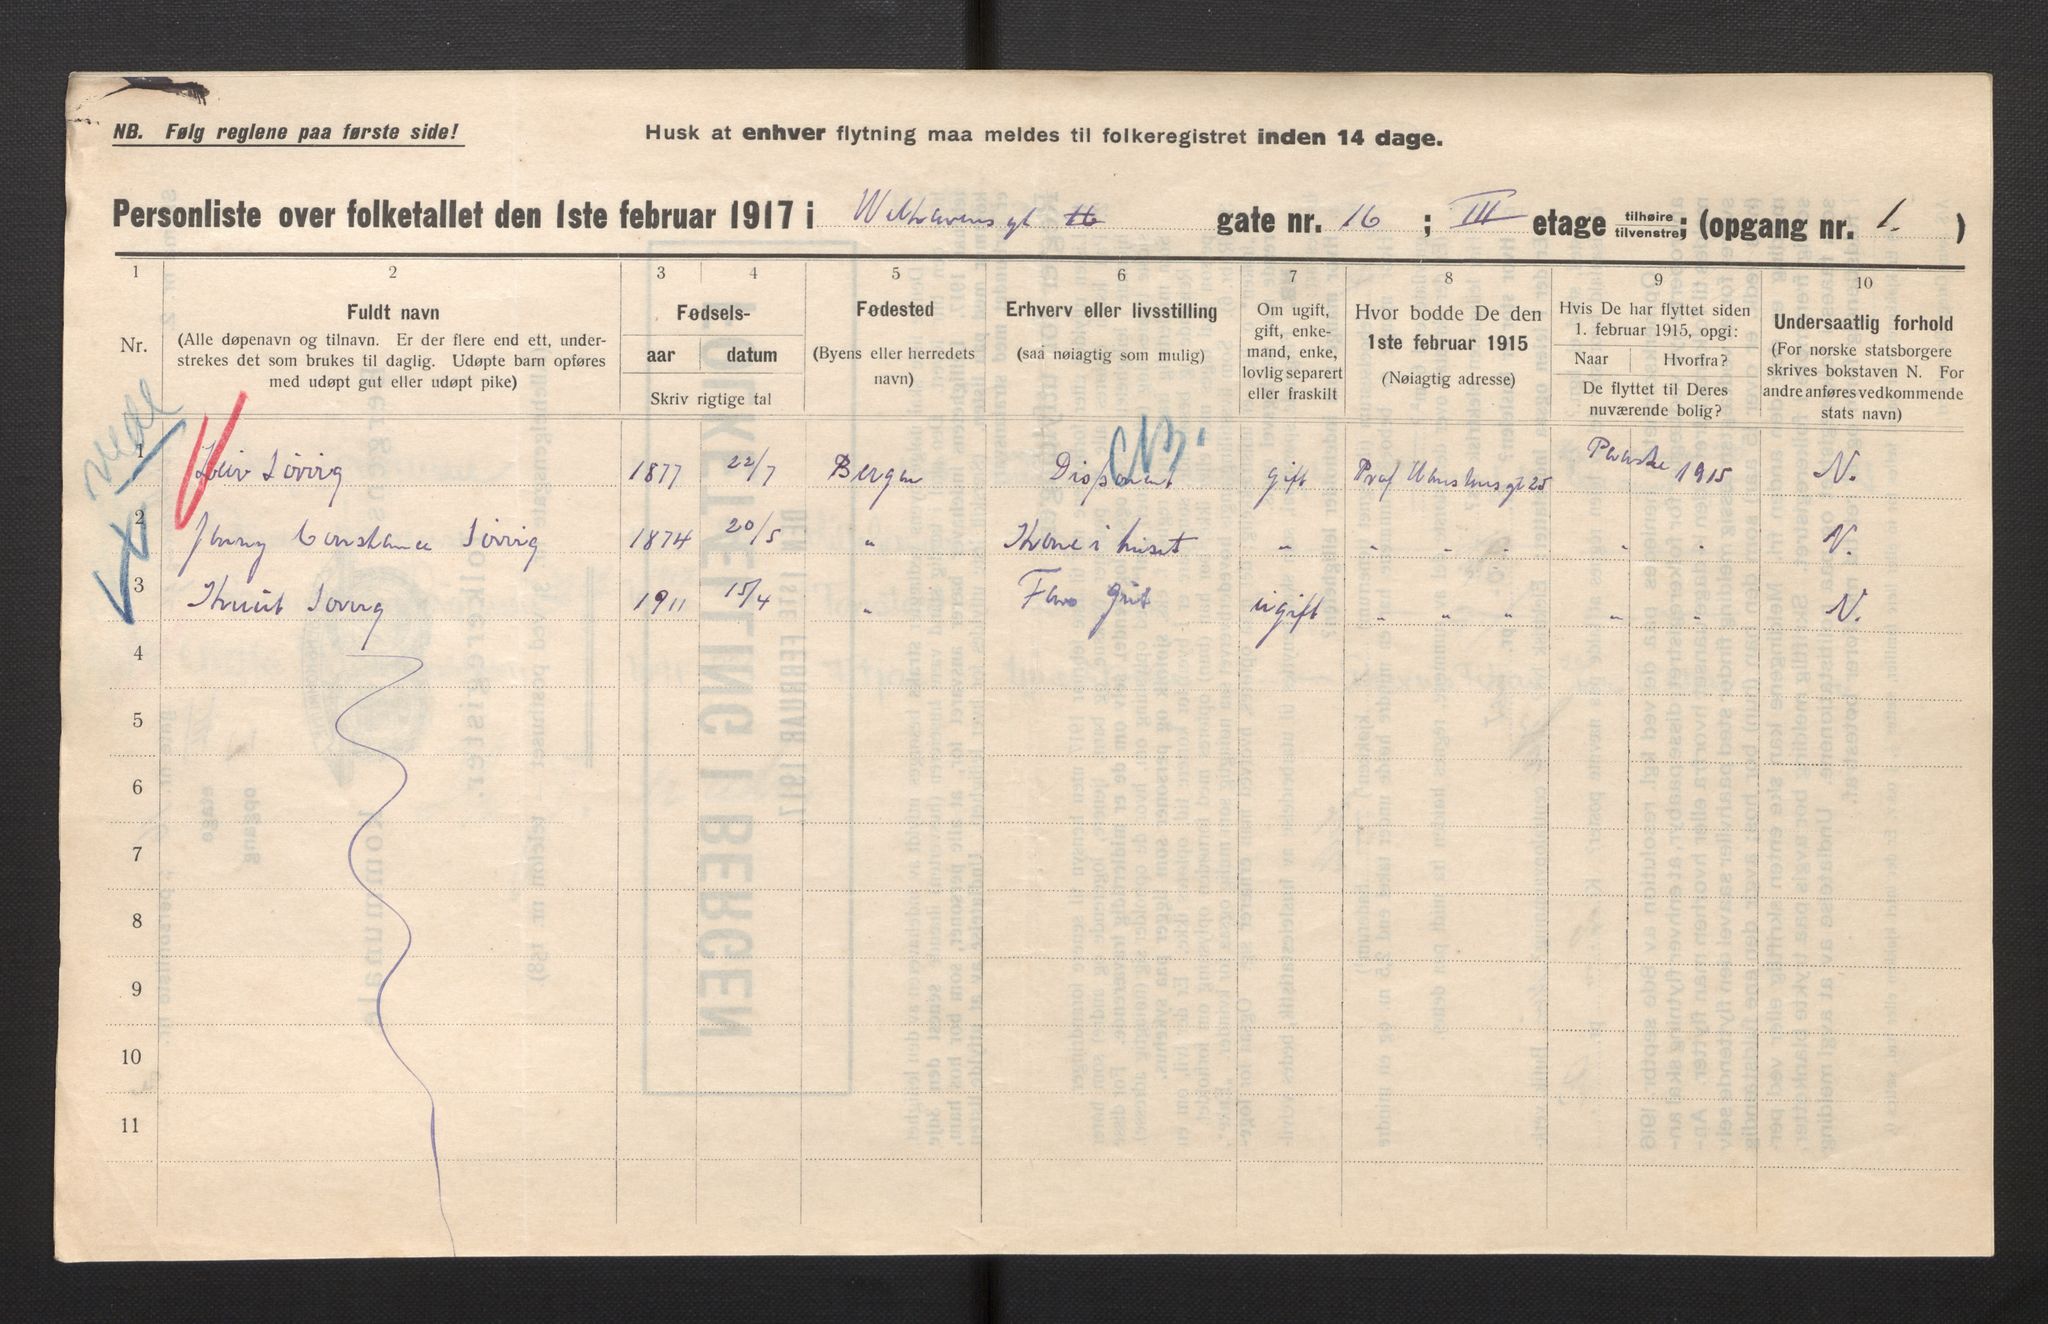 NB. Følg reglene paa første side!
Husk at enhver flytning maa meldes til folkeregistret inden 14 dage.
Personliste over folketallet den 1ste februar 1917 i Welhavensgt gate nr. 16 ; III etage tilhøire tilvenstre; (opgang nr. 1. )
1 2 3 4 5 6 7 8 9 10
Nr.
Fuldt navn
(Alle døpenavn og tilnavn. Er der flere end ett, under-
strekes det som brukes til daglig. Udøpte barn opføres
med udøpt gut eller udøpt pike)
Fødsels-
aar datum
Skriv rigtige tal
Fødested
(Byens eller herredets
navn)
Erhverv eller livsstilling
(saa nøiagtig som mulig)
Om ugift,
gift, enke-
mand, enke,
lovlig separert
eller fraskilt
Hvor bodde De den
1ste februar 1915
(Nøiagtig adresse)
Hvis De har flyttet siden
1. februar 1915, opgi:
Naar Hvorfra?
De flyttet til Deres
nuværende bolig?
Undersaatlig forhold
(For norske statsborgere
skrives bokstaven N. For
andre anføres vedkommende
stats navn)
1 Søvig 1877 22/7 Bergen Disponent gift Prof Hanstensgt 25 1915 N.
2 Jenny Constance Søvig 1874 20/5 " Kone i huset " " " " " " " N.
3 Knut Søvig 1911 15/4 " ugift " " " " " " N.
4
5
6
7
8
9
10
11